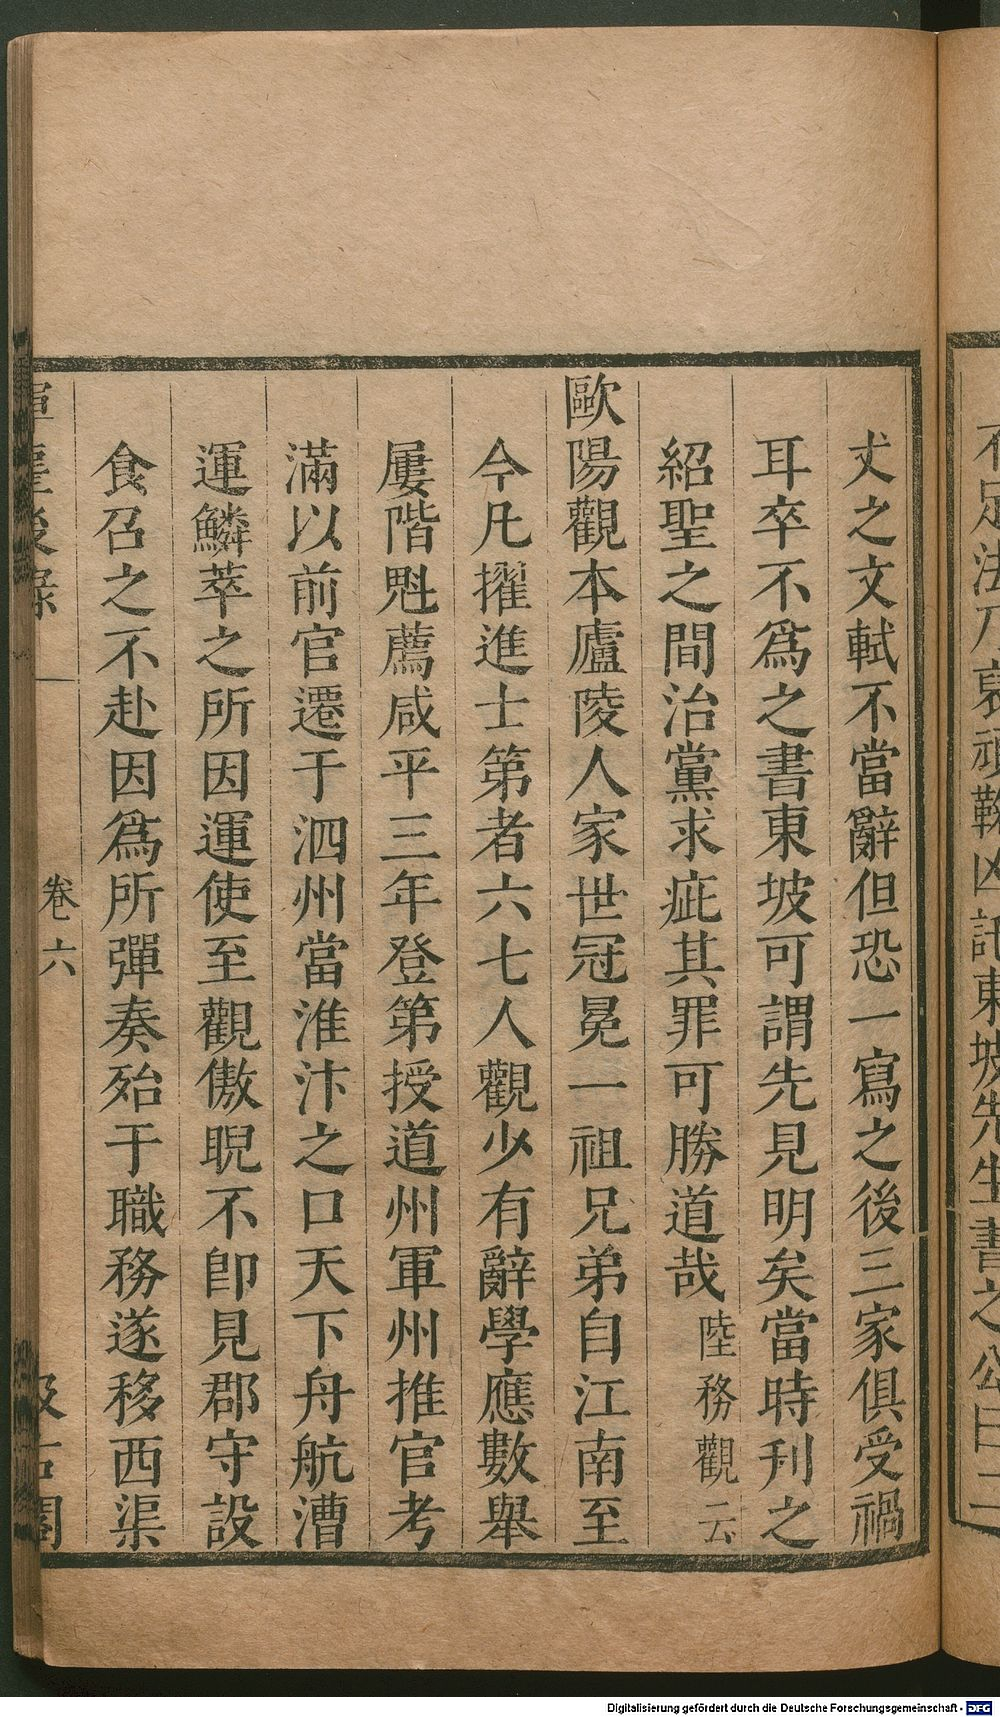 不足法乃裒頑鞠凶訖東坡先生書之公曰二
丈之文軾不當辭但恐一寫之後三家俱受禍
耳卒不爲之書東坡可謂先見明矣當時刋之
紹聖之間治黨求疵其罪可勝道哉陸務觀云
歐陽觀本廬陵人家世冠冕一祖兄弟自江南至
今凡擢進士第者六七人觀少有辭學應數舉
屢階魁薦咸平三年登第授道州軍州推官考
滿以前官遷于泗州當淮汴之口天下舟航漕
運鱗萃之所因運使至觀傲睨不卽見郡守設
食召之不赴因爲所彈奏殆于職務遂移西渠
後錄 卷六
Digitalisierung gefördert durch die Deutsche Forschungsgemeinschaft - DFG